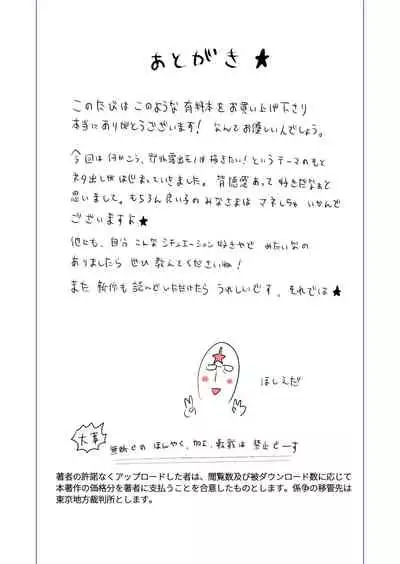 あとがき ★
このたびは このような 有料本を お買い上げ下さり
本当に ありがとうございます! なんてお優しい人でしょう。
今回は 何かこう、野外露出モノは 描きたい! という テーマのもと
ネタ出しが はじまっていきました。 背徳感あって 好きだなぁと
思いまして。もちろん 良い子の みなさまは マネしちゃ いかんで
ございますよ★
他にも、自分 こんな シチュエーション 好きやで みたいなの
ありましたら ぜひ 教えてくださいね!
また 新作も 読んでいただけたら うれしいです、 それでは ★
ほしえだ
大事
無断での ほんやく、加工、転載は 禁止でーす
著者の許諾なくアップロードした者は、閲覧数及び被ダウンロード数に応じて
本著作の価格分を著者に支払うことを合意したものとします。係争の移管先は
東京地方裁判所とします。